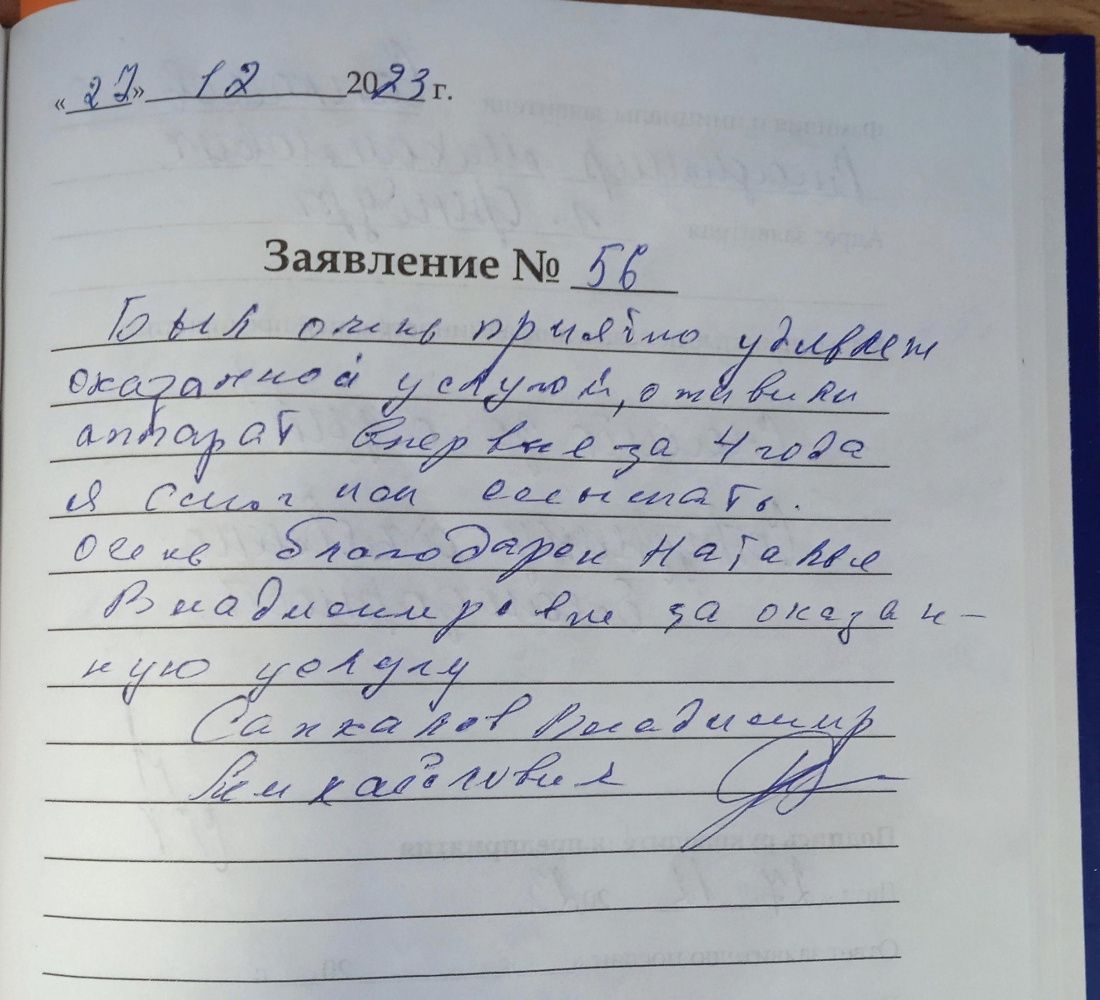 «27» 12 2023 г.
Заявление № 56
Был очень приятно удивлен
оказанной услугой, оживили
аппарат впервые за 4 года
я смог
очень благодарен Наталье
Владимировне за оказан-
ную услугу
Владимир